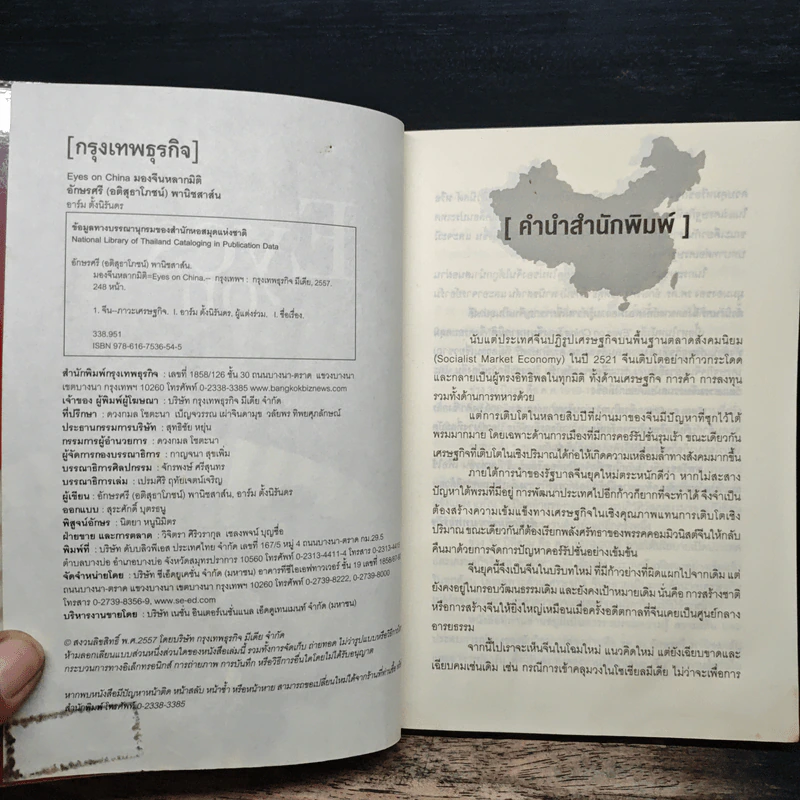 [กรุงเทพธุรกิจ]
Eyes on China มองจีนหลากมิติ
อักษรศรี (อติสุธาโภชน์) พานิชสาส์น
อาร์ม ตั้งนิรันดร
ข้อมูลทางบรรณานุกรมของสำนักหอสมุดแห่งชาติ
National Library of Thailand Cataloging in Publication Data
อักษรศรี (อติสุธาโภชน์) พานิชสาส์น.
มองจีนหลากมิติ=Eyes on China.-- กรุงเทพฯ : กรุงเทพธุรกิจ มีเดีย, 2557.
248 หน้า.
1. จีน--ภาวะเศรษฐกิจ. I. อาร์ม ตั้งนิรันดร, ผู้แต่งร่วม. I. ชื่อเรื่อง.
338.951
ISBN 978-616-7536-54-5
สำนักพิมพ์กรุงเทพธุรกิจ : เลขที่ 1858/126 ชั้น 30 ถนนบางนา-ตราด แขวงบางนา
เขตบางนา กรุงเทพฯ 10260 โทรศัพท์ 0-2338-3385 www.bangkokbiznews.com
เจ้าของ ผู้พิมพ์ผู้โฆษณา : บริษัท กรุงเทพธุรกิจ มีเดีย จำกัด
ที่ปรึกษา : ดวงกมล โชตะนา เบ็ญจวรรณ เผ่าจินดามุข วลัยพร ทิพยศุภลักษณ์
ประธานกรรมการบริษัท : สุทธิชัย หยุ่น
กรรมการผู้อำนวยการ : ดวงกมล โชตะนา
ผู้จัดการกองบรรณาธิการ : กาญจนา สุขเพิ่ม
บรรณาธิการศิลปกรรม : จักรพงษ์ ศรีสุนทร
บรรณาธิการเล่ม : เปรมศิริ ฤทัยเจตน์เจริญ
ผู้เขียน : อักษรศรี (อติสุธาโภชน์) พานิชสาส์น, อาร์ม ตั้งนิรันดร
ออกแบบ : สุระศักดิ์ บุตรธนู
พิสูจน์อักษร : นิตยา หนูนิมิตร
ฝ่ายขาย และการตลาด : วิจิตรา ศิริวรากุล เชลงพจน์ บุญซื่อ
พิมพ์ที่ : บริษัท ดับบลิวพีเอส ประเทศไทย จำกัด เลขที่ 167/5 หมู่ 4 ถนนบางนา-ตราด กม.29.5
ตำบลบางบ่อ อำเภอบางบ่อ จังหวัดสมุทรปราการ 10560 โทรศัพท์ 0-2313-4411-4 โทรสาร 0-2313-4415
จัดจำหน่ายโดย : บริษัท ซีเอ็ดยูเคชั่น จำกัด (มหาชน) อาคารทีซีไอเอฟทาวเวอร์ ชั้น 19 เลขที่ 1858/87-90
ถนนบางนา-ตราด แขวงบางนา เขตบางนา กรุงเทพฯ 10260 โทรศัพท์ 0-2739-8222, 0-2739-8000
โทรสาร 0-2739-8356-9, www.se-ed.com
บริหารงานขายโดย : บริษัท เนชั่น อินเตอร์เนชั่นแนล เอ็ดดูเทนเมนท์ จำกัด (มหาชน)
© สงวนลิขสิทธิ์ พ.ศ.2557 โดยบริษัท กรุงเทพธุรกิจ มีเดีย จำกัด
ห้ามลอกเลียนแบบส่วนหนึ่งส่วนใดของหนังสือเล่มนี้ รวมทั้งการจัดเก็บ ถ่ายทอด ไม่ว่ารูปแบบหรือวิธีการใด
กระบวนการทางอิเล็กทรอนิกส์ การถ่ายภาพ การบันทึก หรือวิธีการอื่นใดโดยไม่ได้รับอนุญาต
หากพบหนังสือมีปัญหาหน้าติด หน้าสลับ หน้าซ้ำ หรือหน้าหาย สามารถขอเปลี่ยนใหม่ได้จากร้านที่ท่านซื้อ
สำนักพิมพ์ โทรศัพท์ 0-2338-3385
[ คำนำสำนักพิมพ์ ]
นับแต่ประเทศจีนปฏิรูปเศรษฐกิจบนพื้นฐานตลาดสังคมนิยม
(Socialist Market Economy) ในปี 2521 จีนเติบโตอย่างก้าวกระโดด
และกลายเป็นผู้ทรงอิทธิพลในทุกมิติ ทั้งด้านเศรษฐกิจ การค้า การลงทุน
รวมทั้งด้านการทหารด้วย
แต่การเติบโตในหลายสิบปีที่ผ่านมาของจีนมีปัญหาที่ซุกไว้ใต้
พรมมากมาย โดยเฉพาะด้านการเมืองที่มีการคอร์รัปชั่นรุมเร้า ขณะเดียวกัน
เศรษฐกิจที่เติบโตในเชิงปริมาณได้ก่อให้เกิดความเหลื่อมล้ำทางสังคมมากขึ้น
ภายใต้การนำของรัฐบาลจีนยุคใหม่ตระหนักดีว่า หากไม่สะสาง
ปัญหาใต้พรมที่มีอยู่ การพัฒนาประเทศไปอีกก้าวก็ยากที่จะทำได้ จึงจำเป็น
ต้องสร้างความเข้มแข็งทางเศรษฐกิจในเชิงคุณภาพแทนการเติบโตเชิง
ปริมาณ ขณะเดียวกันก็ต้องเรียกพลังศรัทธาของพรรคคอมมิวนิสต์จีนให้กลับ
คืนมาด้วยการจัดการปัญหาคอร์รัปชั่นอย่างเข้มข้น
จีนยุคนี้จึงเป็นจีนในบริบทใหม่ ที่มีก้าวย่างที่ผิดแผกไปจากเดิม แต่
ยังคงอยู่ในกรอบวัฒนธรรมเดิม และยังคงเป้าหมายเดิม นั่นคือ การสร้างชาติ
หรือการสร้างจีนให้ยิ่งใหญ่เหมือนเมื่อครั้งอดีตกาลที่จีนเคยเป็นศูนย์กลาง
อารยธรรม
จากนี้ไปเราจะเห็นจีนในโฉมใหม่ แนวคิดใหม่ แต่ยังเฉียบขาดและ
เฉียบคมเช่นเดิม เช่น กรณีการเข้าคลุมวงในโซเชียลมีเดีย ไม่ว่าจะเพื่อการ